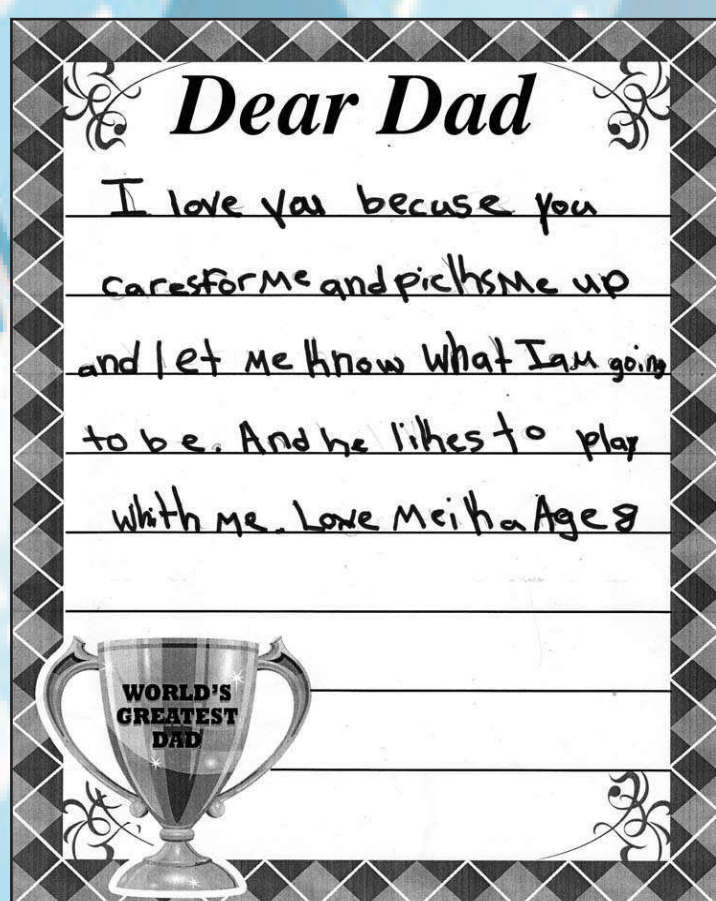 Dear Dad
I love you becuse you
cares for me and picks me up
and let me know what I am going
to be. And he likes to play
whith me. Love Meika Age 8
WORLD'S
GREATEST
DAD